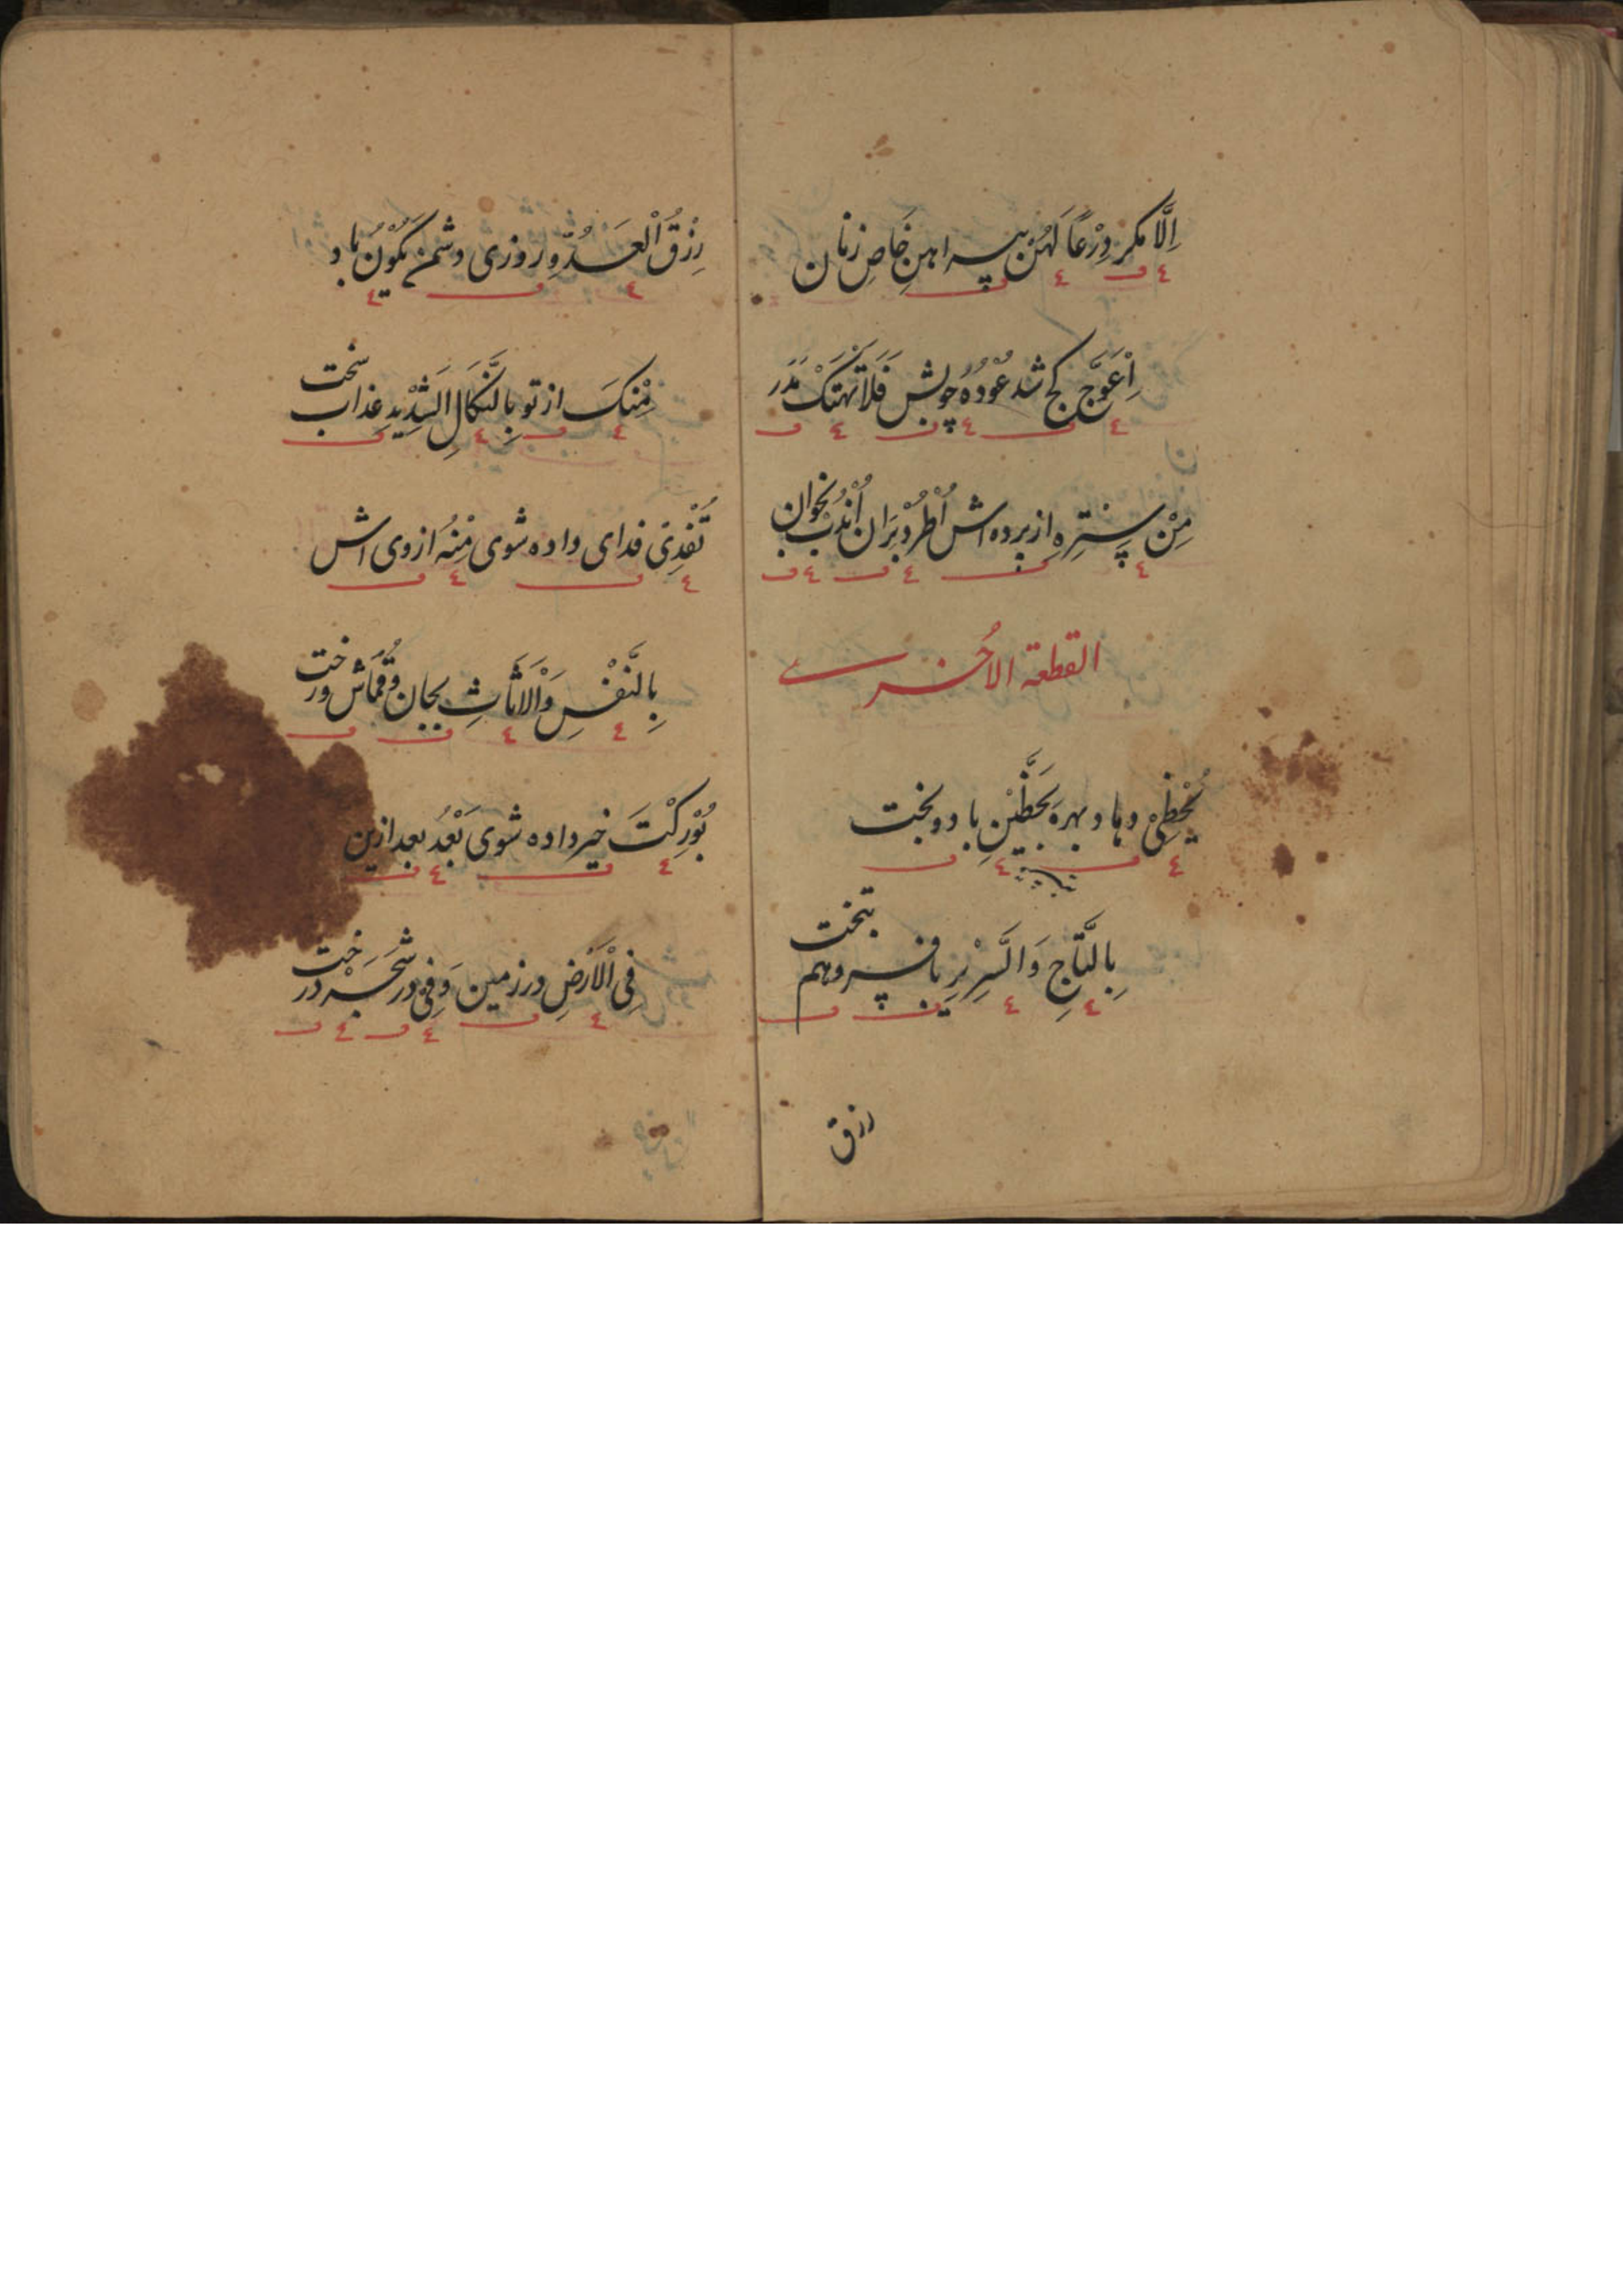 اِلَّا مگر دِرْعًا لَهُنْ پیراهنِ خَاصِ زنان
اِعْوَجَّ کج شد عُوْدُهُ چوبش فَلَا تَهْتِکْ مَدَر
مِنْ سِتْرِهِ از پرده اش اُطْرُدْ بَرَان اُنْدُبْ بخوان
القطعة الاُخرے
یُحْظِیْ دهاد بهره بِحَظَّیْنِ با دو بخت
بِالتَّاجِ وَالسَّرِیْرِ با فسر و هم بتخت
رزق
رِزْقُ الْعَدُوِّ روزی دشمن یَکُوْنُ باد
مِنْکَ از تو بِالنَّکَالِ الشَّدِیْدِ عذاب سخت
تُفْدِیْ فدای داده شوی مِنْهُ از وی اش
بِالنَّفْسِ وَالْاَثَاثِ بجان و قُمَاش و رخت
بُوْرِکْتَ خیر داده شوی بَعْدُ بعد ازین
فِی الْاَرْضِ در زمین وَفِیْ در شَجَرْ درخت